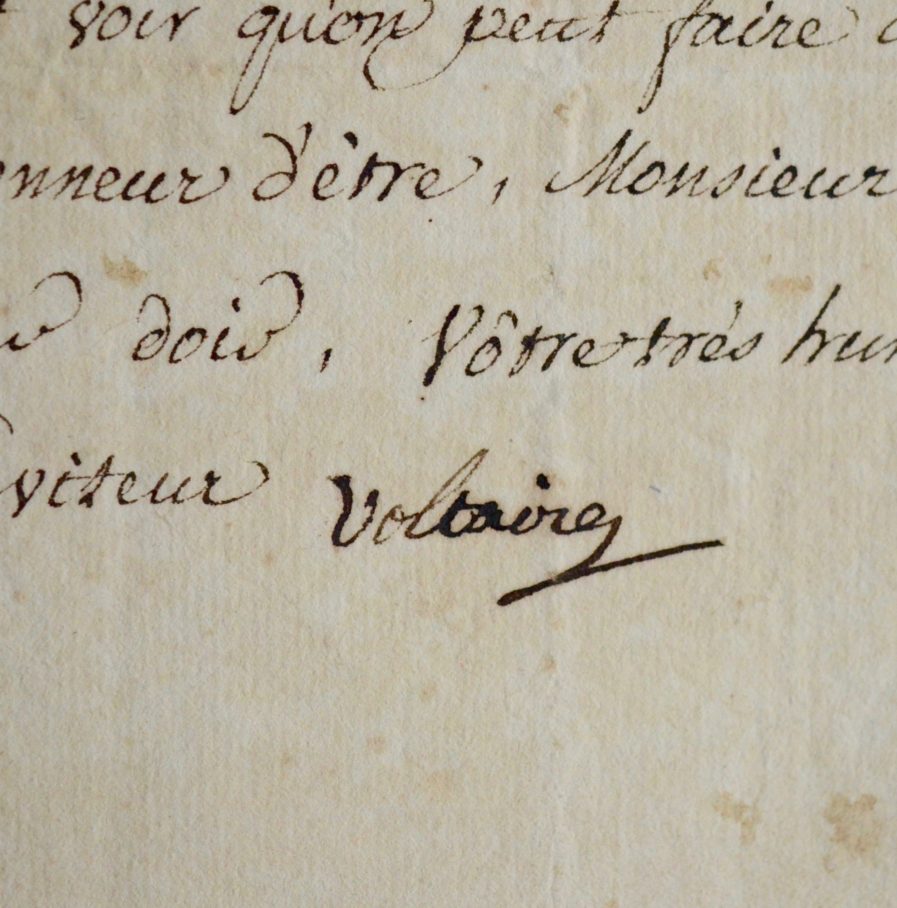 voir qu'on peut faire
onneur d'être, Monsieur
dois, Vôtre très hum
viteur Voltaire